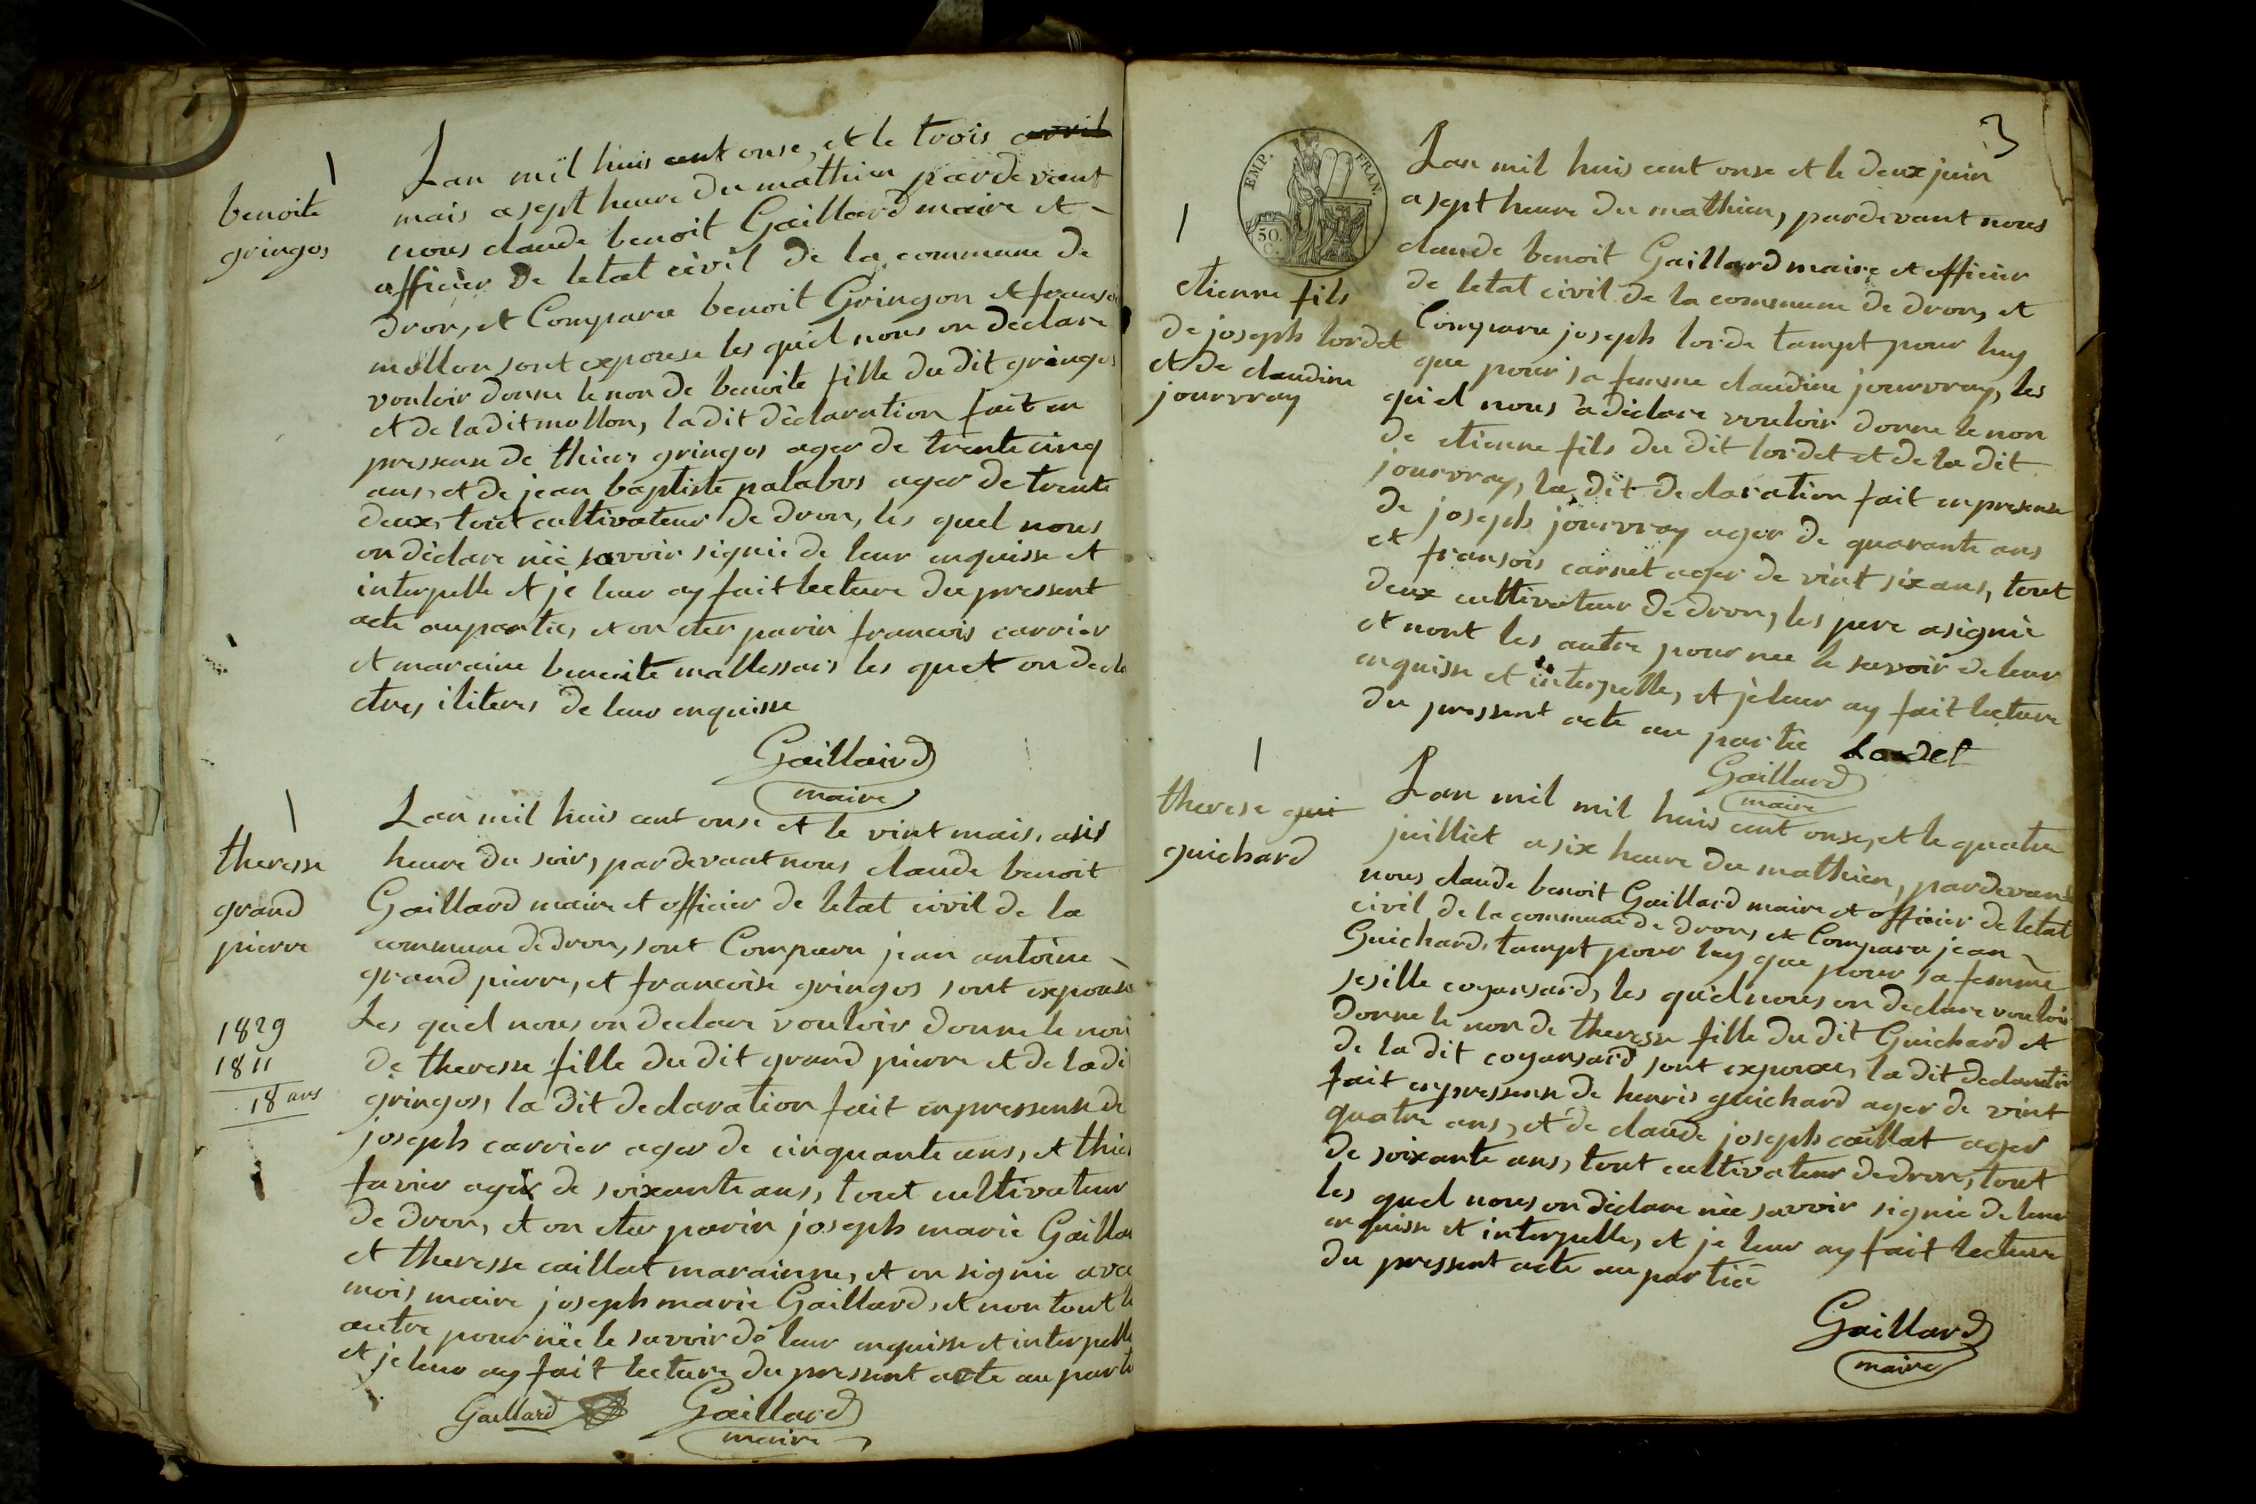 1
benoite
gringos
Lan mil huis cent onse, et le trois avril
mais a sept heure du mathien pardevant
nous claude benoit Gaillard maire et
afficier de letat civil de la commune de
dron, et Comparu benoit Gringon et franse
mollon sont expouse les quel nous on declare
vouloir donne le non de benoite fille du dit gringos
et de la dit mollon, la dit declaration fait en
pressense de thiers gringos ager de trente cinq
ans, et de jean baptiste palabos ager de trente
deux, tout cultivateur de dron, les quel nous
on declare nèe savoir signie de leur enquisse et
interpelle et je leur ay fait lecture du pressent
acte au partie, et on eter parin francois carrier
et maraine benoite mallessais les quet on decla
etres iliteres de leur enquisse
Gaillaird
maire
1
theresse
grand
pierre
1829
1811
18 ans
Lan mil huis cent onse et le vint mais, a sis
heure du soir, pardevant nous claude benoit
Gaillard maire et officier de letat civil de la
commune de dron, sont Comparu jean antoine
grand pierre, et francoise gringos sont expouse
Les quel nous on declare vouloir donne le non
de theresse fille du dit grand pierre et de la di
gringos, la dit declaration fait en pressense de
joseph carrier ager de cinquante ans, et thie
favier ager de soixante ans, tout cultivateur
de dron, et on eter parin joseph marie Gailla
et theresse caillat marainne, et on signie ave
mois maire joseph marie Gaillard, et non tout l
autre pour nèe le savoir de leur enquisse et interpelle
et je leur ay fait lecture du pressent acte au parte
Gaillard Gaillard
maire
3
EMP. FRAN.
50.
C.
1
etienne fils
de joseph lordet
et de claudine
jourvray
Lan mil huis cent onse et le deux juin
a sept heure du mathien, pardevant nous
claude benoit Gaillard maire et officier
de letat civil de la commune de dron, et
Comparu joseph lorde tampt pour luy
que pour sa femme claudine jourvray, les
quel nous a declare vouloir donne le non
de etienne fils du dit lordet et de la dit
jourvray, la dit declaration fait en presense
de joseph jourvray ager de quarante ans
et fransois carnet ager de vint six ans, tout
deux cultivateur de dron, les pere a signie
et nont les autre pour nee le savoir de leur
enquisse et interpelle, et je leur ay fait lecture
du pressent acte au partie Lordet
Gaillard
maire
1
therese gui
guichard
Lan mil mil huis cent onse, et le quatre
juilliet a six heure du mathien, pardevant
nous claude benoit Gaillard maire et officier de letat
civil de la commune de dron, et Comparu jean
Guichard, tampt pour luy que pour sa femme
sesille coyansard, les quel nous on declare vouloir
donne le non de theresse fille du dit Guichard et
de la dit coyansard sont expouxe, la dit declaration
fait en pressense de henris guichard ager de vint
quatre ans, et de claude joseph caillat ager
de soixante ans, tout cultivateur de dron, tout
les quel nous on declare nèe savoir signie de leur
enquisse et interpelle, et je leur ay fait lecture
du pressent acte au partiè
Gaillard
maire